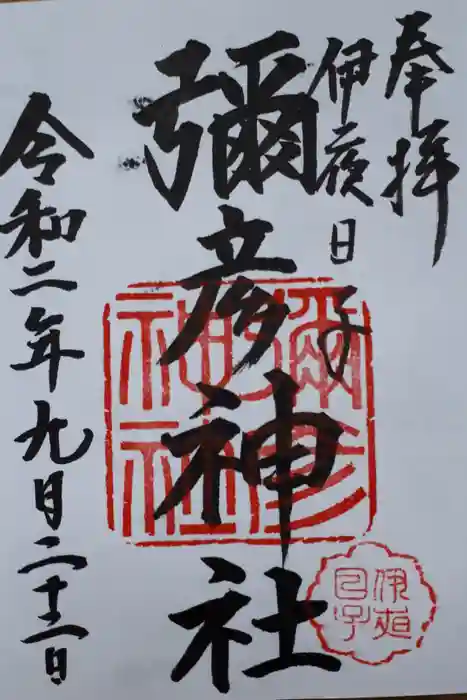 奉拝
伊夜日子
彌彦神社
令和二年九月二十二日
彌彦神社